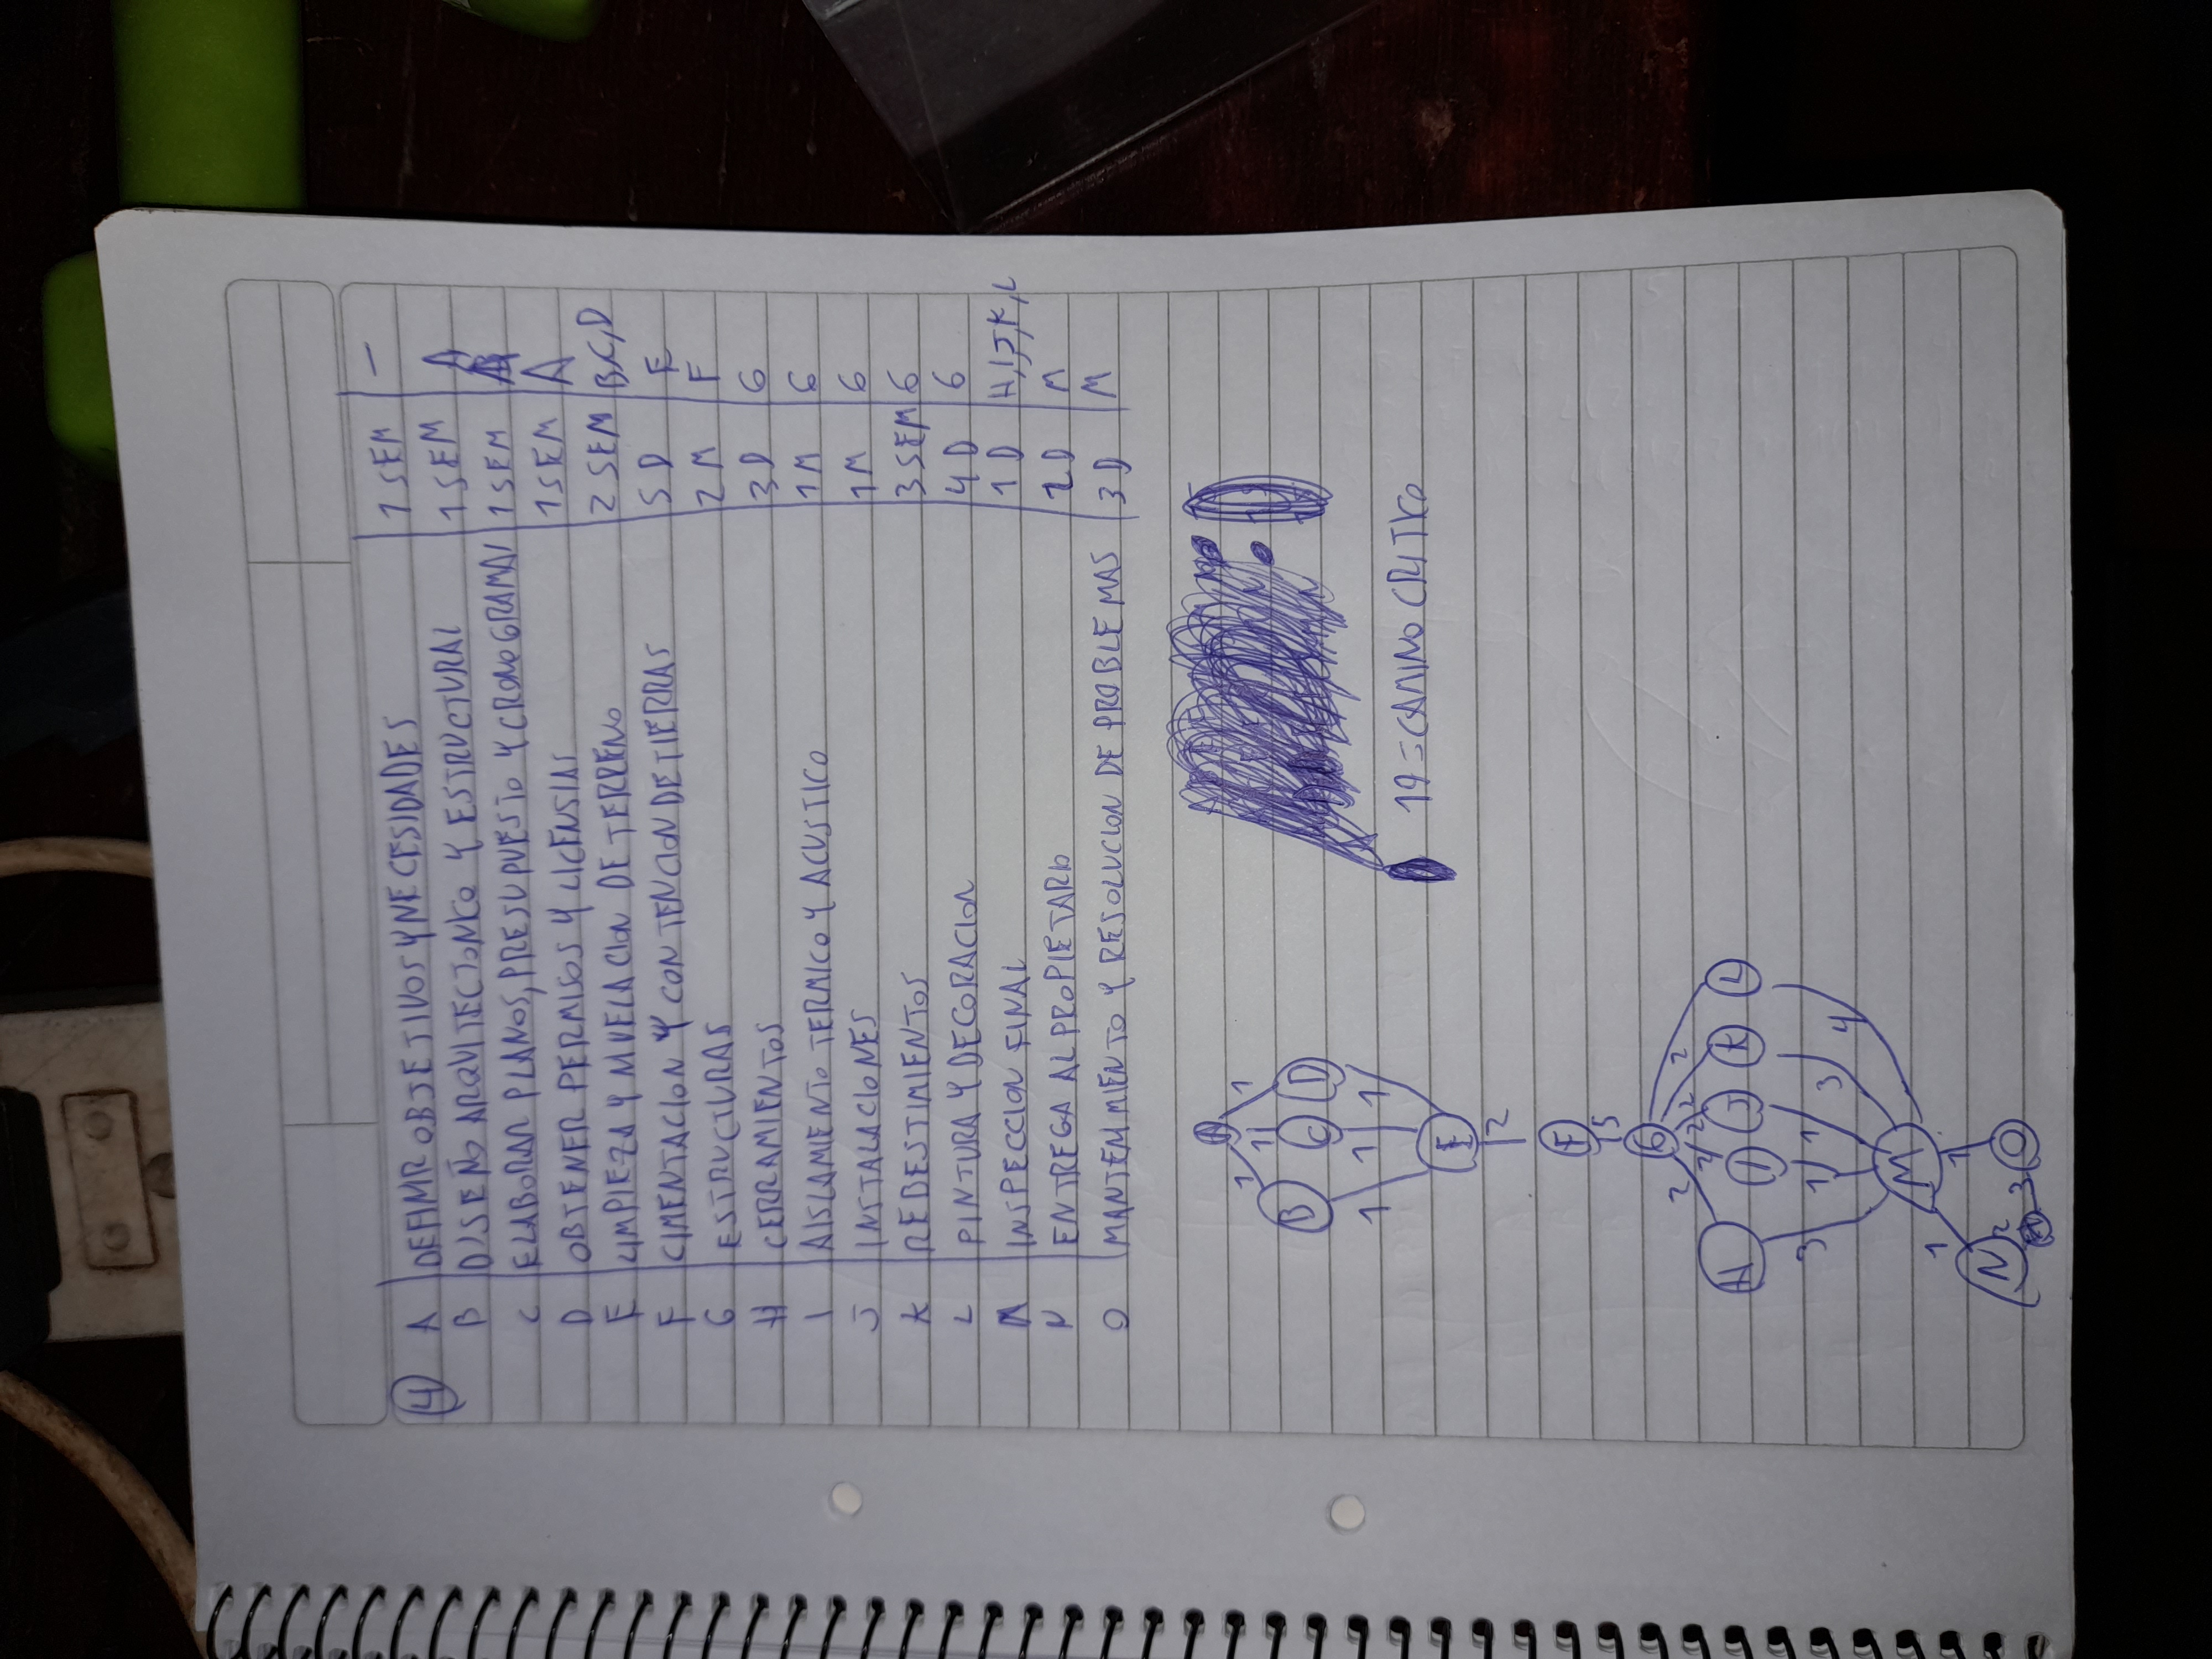 4 A DEFINIR OBJETIVOS Y NECESIDADES 1 SEM —
B DISEÑO ARQUITECTONICO Y ESTRUCTURAL 1 SEM A
C ELABORAR PLANOS, PRESUPUESTO Y CRONOGRAMAS 1 SEM
D OBTENER PERMISOS Y LICENSIAS 1 SEM A
E LIMPIEZA Y NIVELACION DE TERRENO 2 SEM B,C,D
F CIMENTACION Y CONTENCION DE TIERRAS 5 D E
G ESTRUCTURAS 2 M F
H CERRAMIENTOS 3 D G
I AISLAMIENTO TERMICO Y ACUSTICO 1 M G
J INSTALACIONES 1 M G
K REBESTIMIENTOS 3 SEM G
L PINTURA Y DECORACION 4 D G
M INSPECCION FINAL 1 D H,I,J,K,L
N ENTREGA AL PROPIETARIO 2 D M
O MANTENIMIENTO Y RESOLUCION DE PROBLEMAS 3 D M
A
1 1 1
B C D
1 1 1
19 = CAMINO CRITICO
E
2
F
5
G
2 2 2 2 2
H I J K L
3 1 1 3 4
M
1 1
N O
2 3